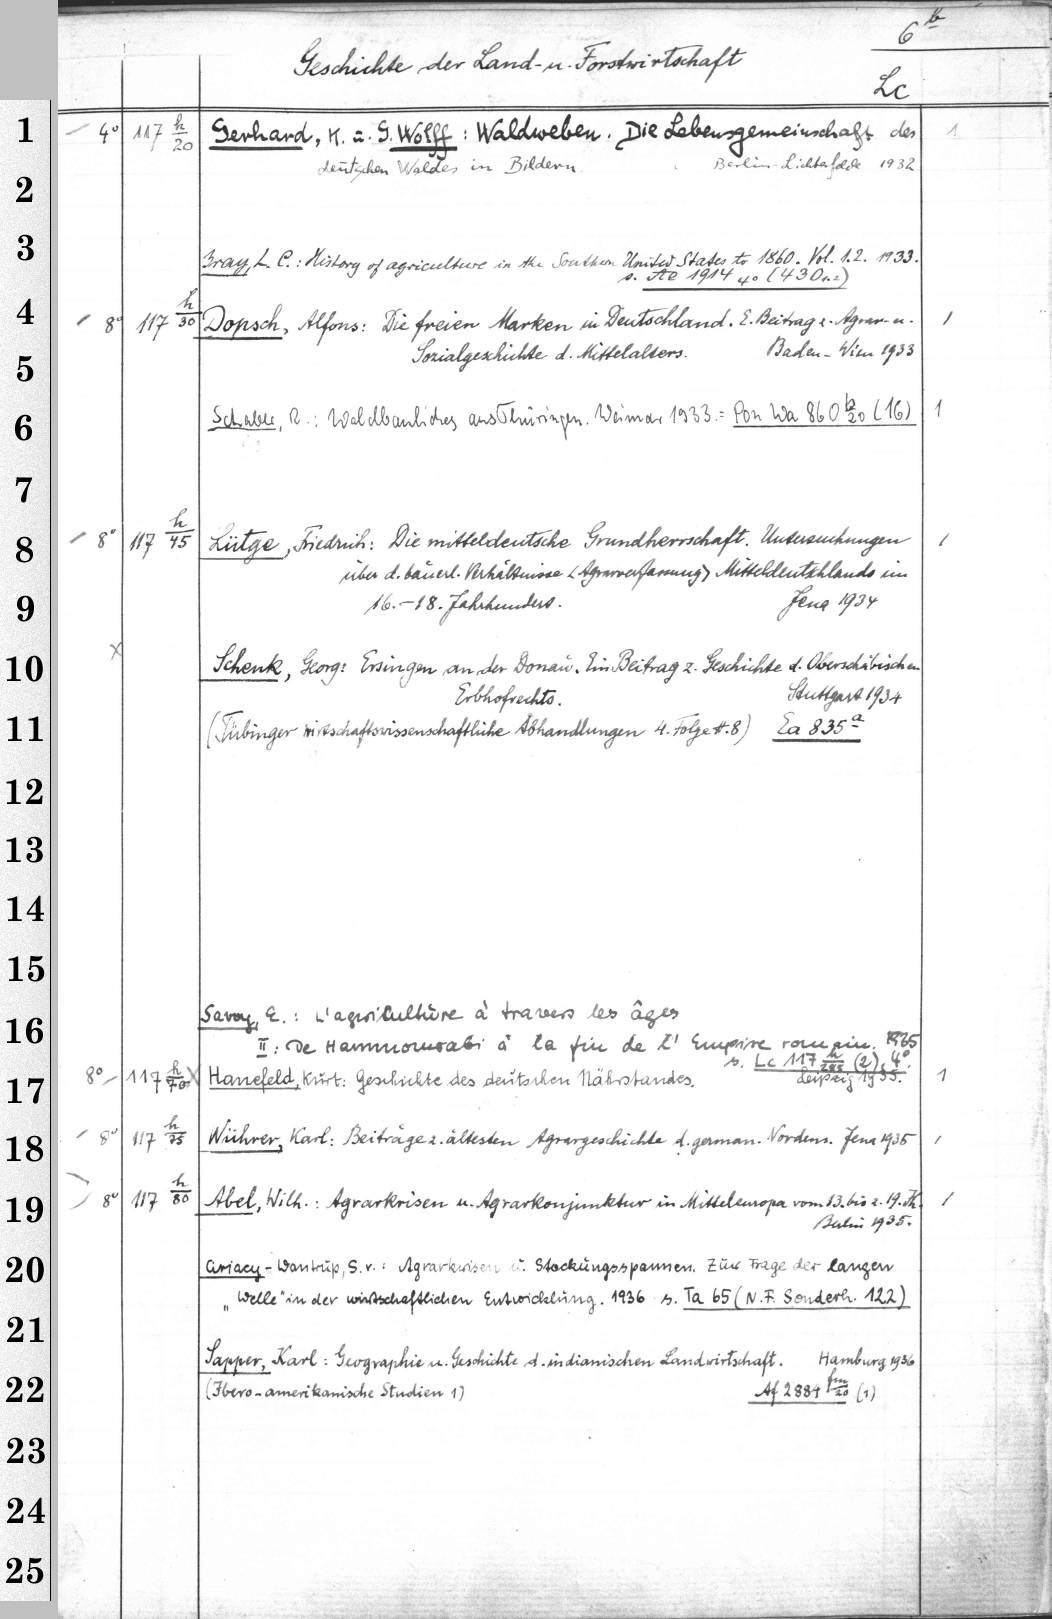 6 b
Geschichte der Land- u. Forstwirtschaft
Lc
1 4° 117 h/20 Gerhard, K. u. G. Wolff: Waldweben. Die Lebensgemeinschaft des 1
2 deutschen Waldes in Bildern. Berlin-Lichterfelde 1932
3 Gray, L. C.: History of agriculture in the Southern United States to 1860. Vol. 1.2. 1933.
s. Ae 1914 4° (430 1.2)
4 8° 117 h/30 Dopsch, Alfons: Die freien Marken in Deutschland. E. Beitrag z. Agrar- u. 1
5 Sozialgeschichte d. Mittelalters. Baden-Wien 1933
6 Schaber, R.: Waldbauliches aus Thüringen. Weimar 1933. = Pon Wa 860 b/20 (16) 1
7
8 8° 117 h/45 Lütge, Friedrich: Die mitteldeutsche Grundherrschaft. Untersuchungen 1
über d. bäuerl. Verhältnisse <Agrarverfassung> Mitteldeutschlands im
9 16.-18. Jahrhundert. Jena 1934
10 x Schenk, Georg: Ersingen an der Donau. Ein Beitrag z. Geschichte d. Oberschäbischen
Erbhofrechts. Stuttgart 1934
11 (Tübinger wirtschaftswissenschaftliche Abhandlungen 4. Folge H. 8) Ea 835 a
12
13
14
15
16 Savoy, E.: L'agriculture à travers les âges
II: De Hammourabi à la fin de l'Empire romain. 1935
s. Lc 117 h/295 (2) 4°.
17 8° 117 h/70 x Hanefeld, Kurt: Geschichte des deutschen Nährstandes. Leipzig 1935. 1
18 8° 117 h/75 Wührer, Karl: Beiträge z. ältesten Agrargeschichte d. german. Nordens. Jena 1935 1
19 8° 117 h/80 Abel, Wilh.: Agrarkrisen u. Agrarkonjunktur in Mitteleuropa vom 13. bis z. 19. Jh. 1
Berlin 1935.
20 Ciriacy-Wantrup, S. v.: Agrarkrisen u. Stockungsspannen. Zur Frage der langen
"Welle" in der wirtschaftlichen Entwicklung. 1936 s. Ta 65 (N.F. Sonderh. 122)
21
Sapper, Karl: Geographie u. Geschichte d. indianischen Landwirtschaft. Hamburg 1936
22 (Ibero-amerikanische Studien 1) Af 2884 fm/20 (1)
23
24
25